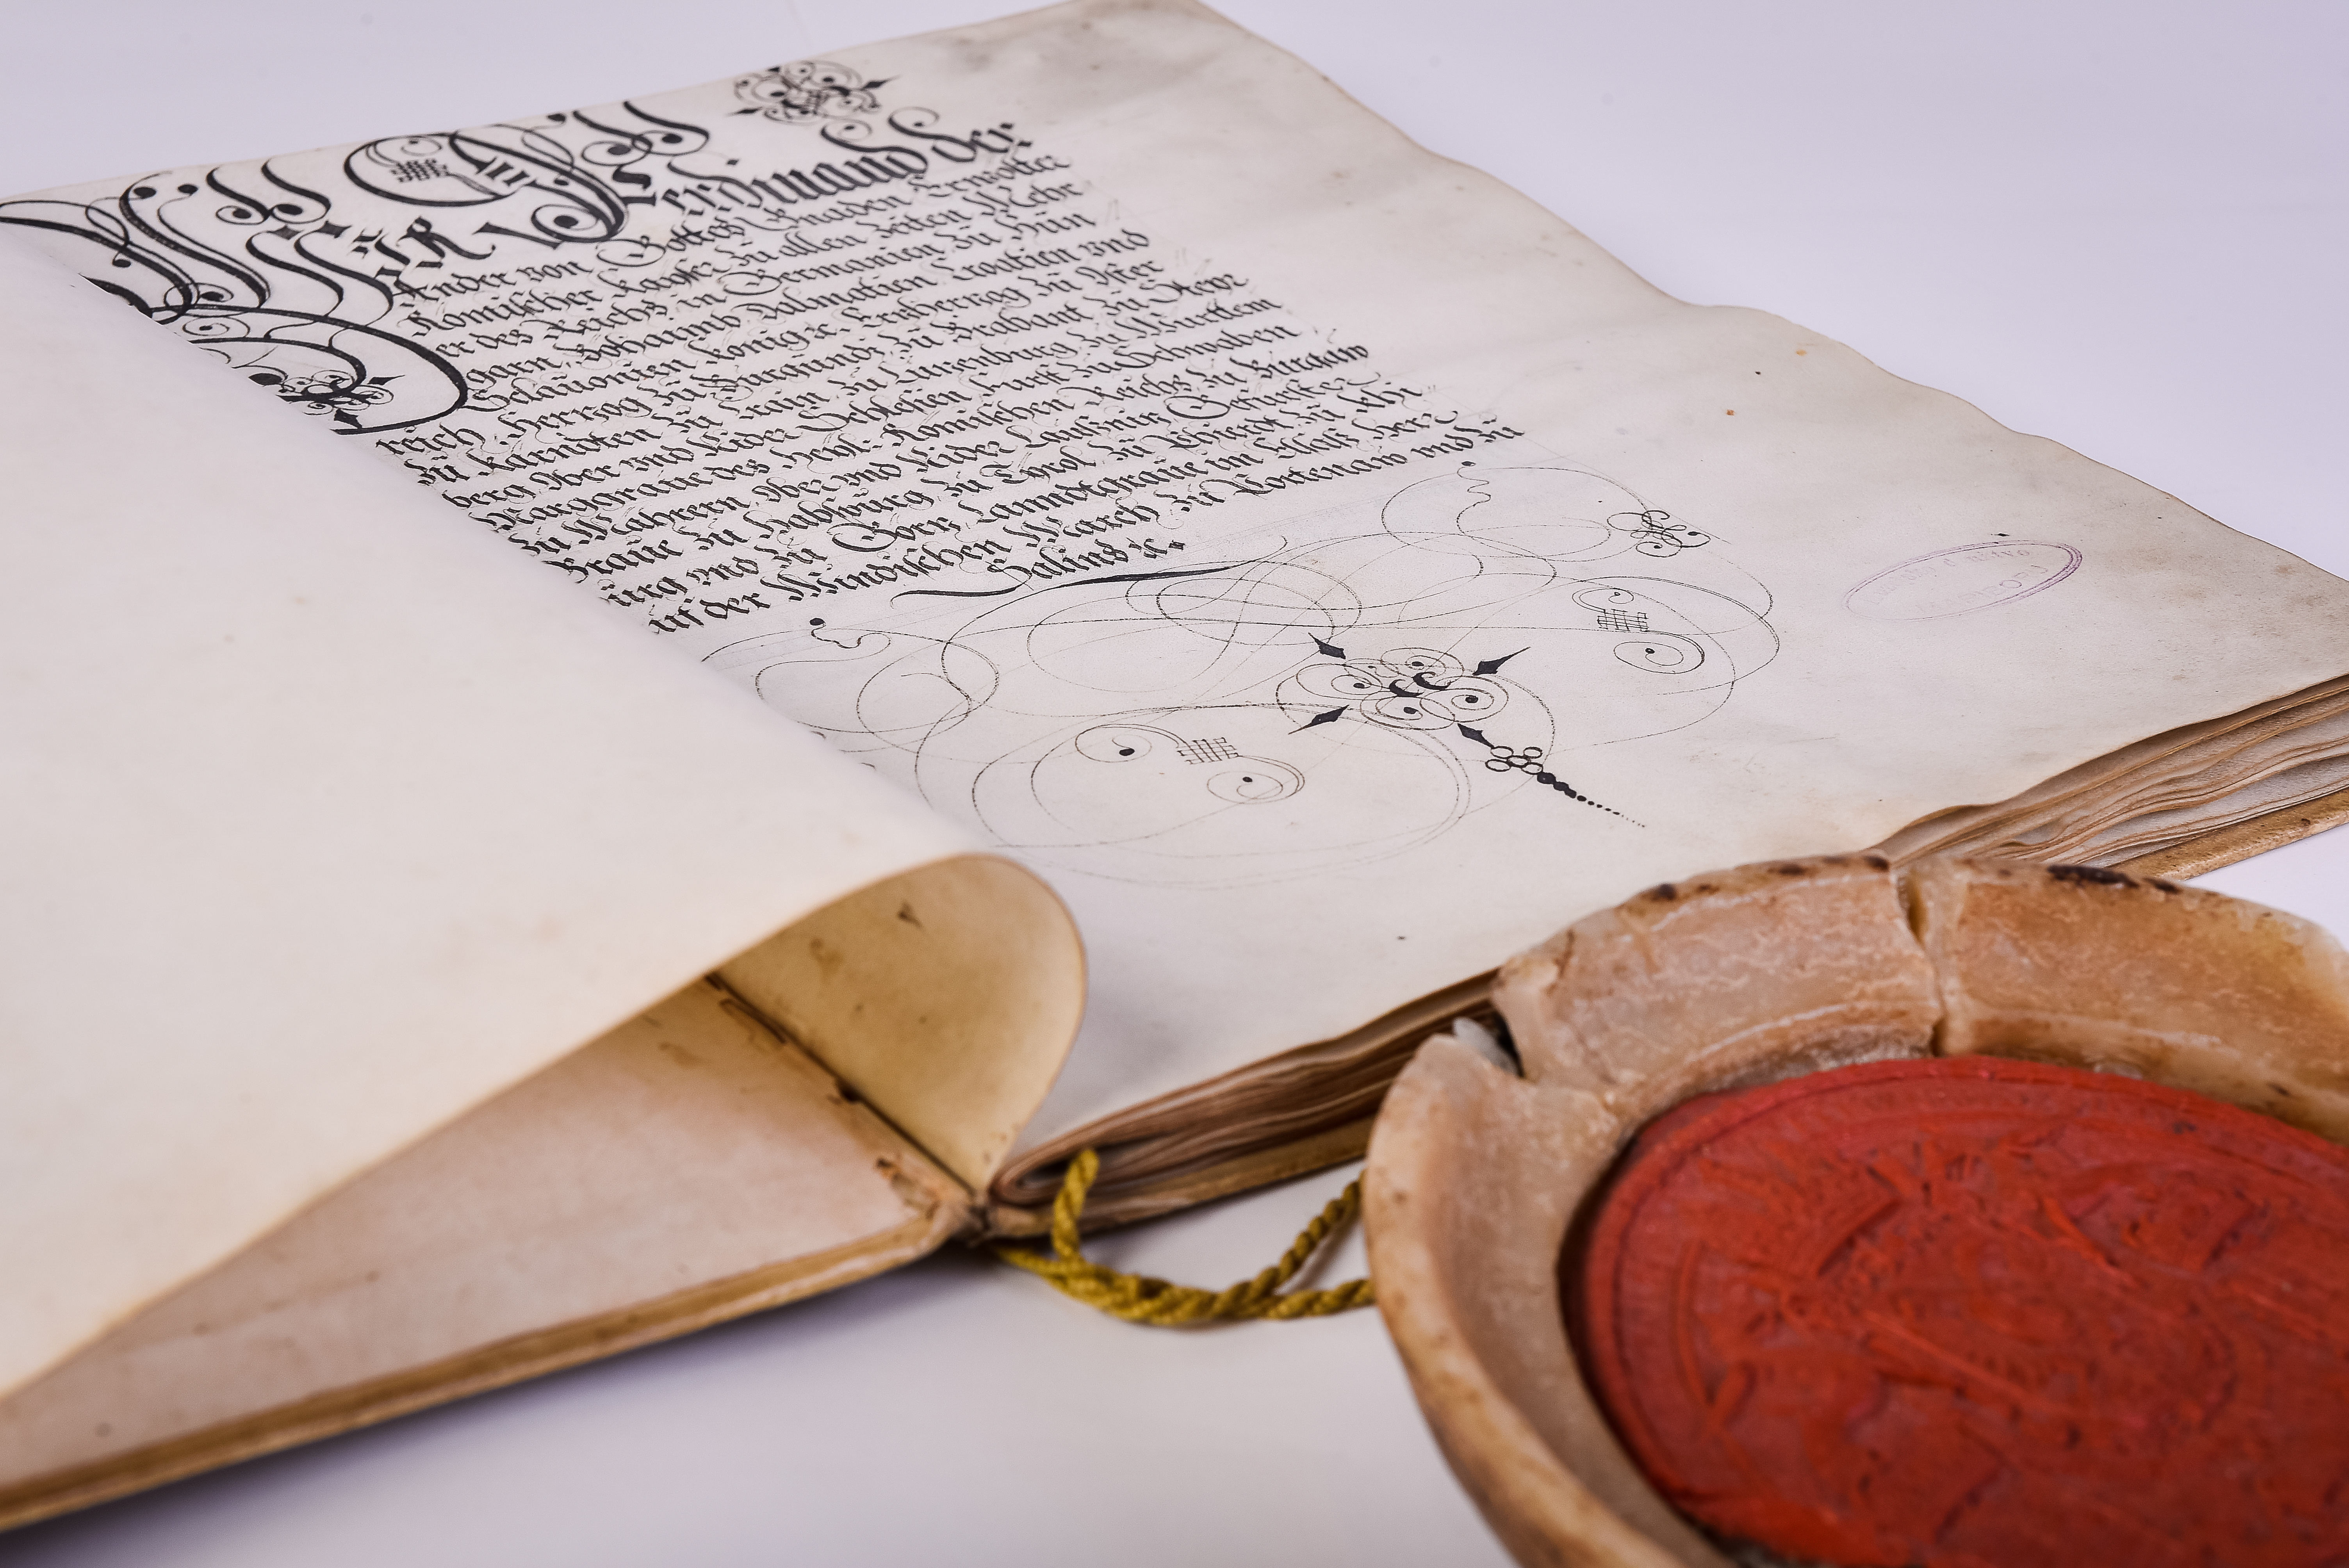 Wür Ferdinand der
Ander von Gottes Gnaden Erwölter
Römischer Kayser zu allen Zeiten Mehr
er des Reichs in Germanien zu Hün
garn Böhaimb Dalmatien Croatien vnd
Sclauonien König ꝛc. Erzherzog zu Öster
reich Herzog zu Burgundj zu Brabant zu Steyr
zu Kärndten zu Crain zu Lüzenburg zu Württem
berg Ober vnd Nider Schlesien Fürst zu Schwaben
Marggraue des Heyl: Römischen Reichs zu Burgaw
zu Mährern Ober vnd Nider Laußniz Gefürster
Graue zu Habspürg zu Tyrol zu Pfierdt zu Khi
ürg vnd zu Görz Lanndtgraue im Elsäß Herr
auf der Windischen March zu Portenaw vnd zu
Salins ꝛc.